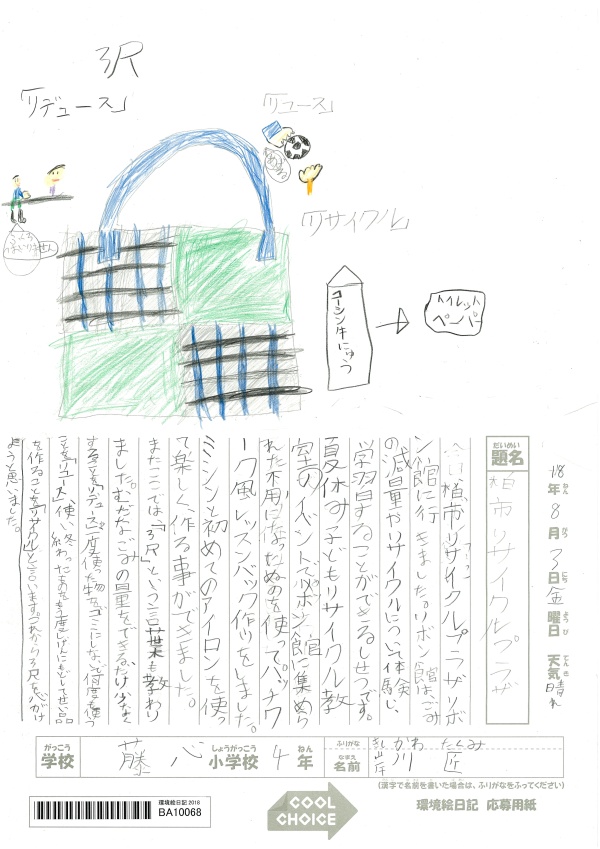 3R
「リデュース」
「リユース」
「リサイクル」
コーシン牛にゅう
トイレット
ペーパー
18年 8月 3日 金曜日 天気 晴れ
ねん がつ にち ようび てんき
だいめい
題名 柏市リサイクルプラザ
柏市リサイクルプラザリボ
ン館に行きました。リボン館はごみ
の減量やリサイクルについて体験し、
学習することができるしせつです。
夏休み子どもリサイクル教
室のイベントでリボン館に集めら
れた不用になったぬのを使ってパッチワ
ーク風レッスンバック作りをしました。
ミシンと初めてのアイロンを使っ
て楽しく作る事ができました。
またここでは「3R」という言葉も教わり
ました。むだなごみの量をできるだけ少なく
することを「リデュース」一度使った物をごみにしないで何度も使う
ことを「リユース」使い終わったものをもう一度しげんにもどしてせい品
を作ることを「リサイクル」と言います。これから3Rを心がけ
ようと思いました。
がっこう しょうがっこう ねん
学校 藤心 小学校 4年
ふりがな きしかわ たくみ
なまえ
名前 岸川 匠
(漢字で名前を書いた場合は、ふりがなをふってください)
環境絵日記 2018
BA10068
COOL
CHOICE
環境絵日記 応募用紙